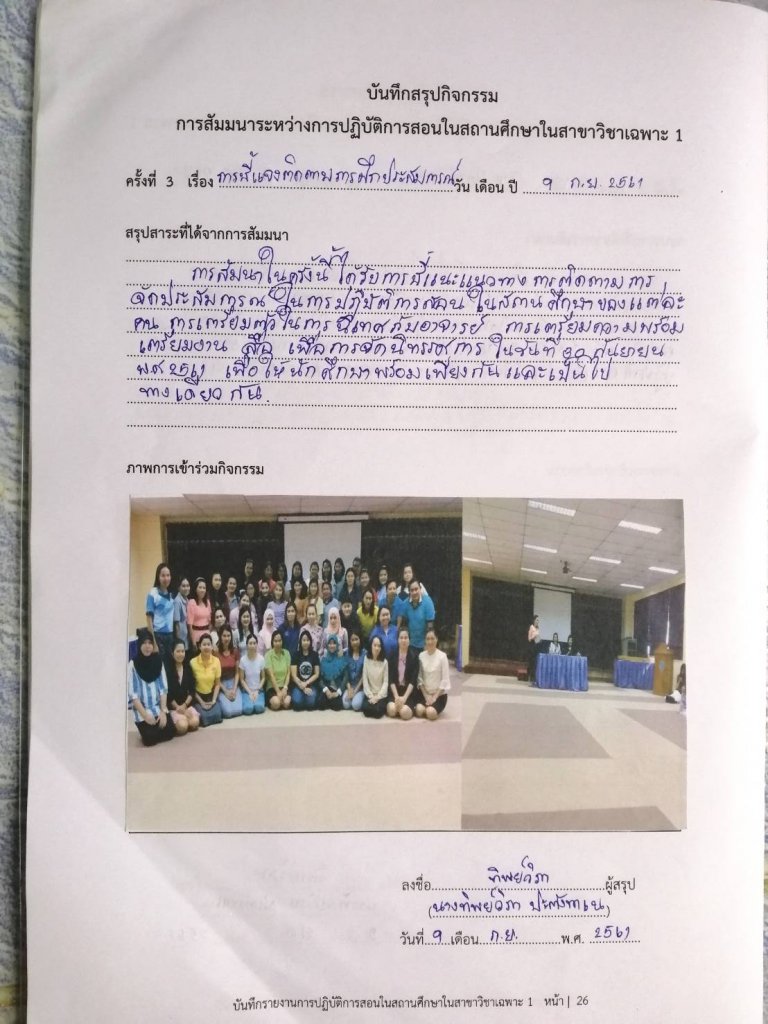 บันทึกสรุปกิจกรรม
การสัมมนาระหว่างการปฏิบัติการสอนในสถานศึกษาในสาขาวิชาเฉพาะ 1
ครั้งที่ 3 เรื่อง การชี้แจงติดตามการฝึกประสบการณ์ วัน เดือน ปี 9 ก.ย. 2561
สรุปสาระที่ได้จากการสัมมนา
การสัมนาในครั้งนี้ ได้รับการชี้แนะแนวทาง การติดตามการ
จัดประสบการณ์ ในการปฏิบัติการสอน ในสถานศึกษาของแต่ละ
คน การเตรียมตัวในการนิเทศกับอาจารย์ การเตรียมความพร้อม
เตรียมงาน สื่อ เพื่อการจัดนิทรรศการ ในวันที่ กันยายน
พ.ศ 2561 เพื่อให้นักศึกษาพร้อมเพียงกัน และเป็นไป
ทางเดียวกัน.
ภาพการเข้าร่วมกิจกรรม
ลงชื่อ ทิพย์วิภา ผู้สรุป
(นางทิพย์วิภา )
วันที่ 9 เดือน ก.ย. พ.ศ. 2561
บันทึกรายงานการปฏิบัติการสอนในสถานศึกษาในสาขาวิชาเฉพาะ 1 หน้า | 26